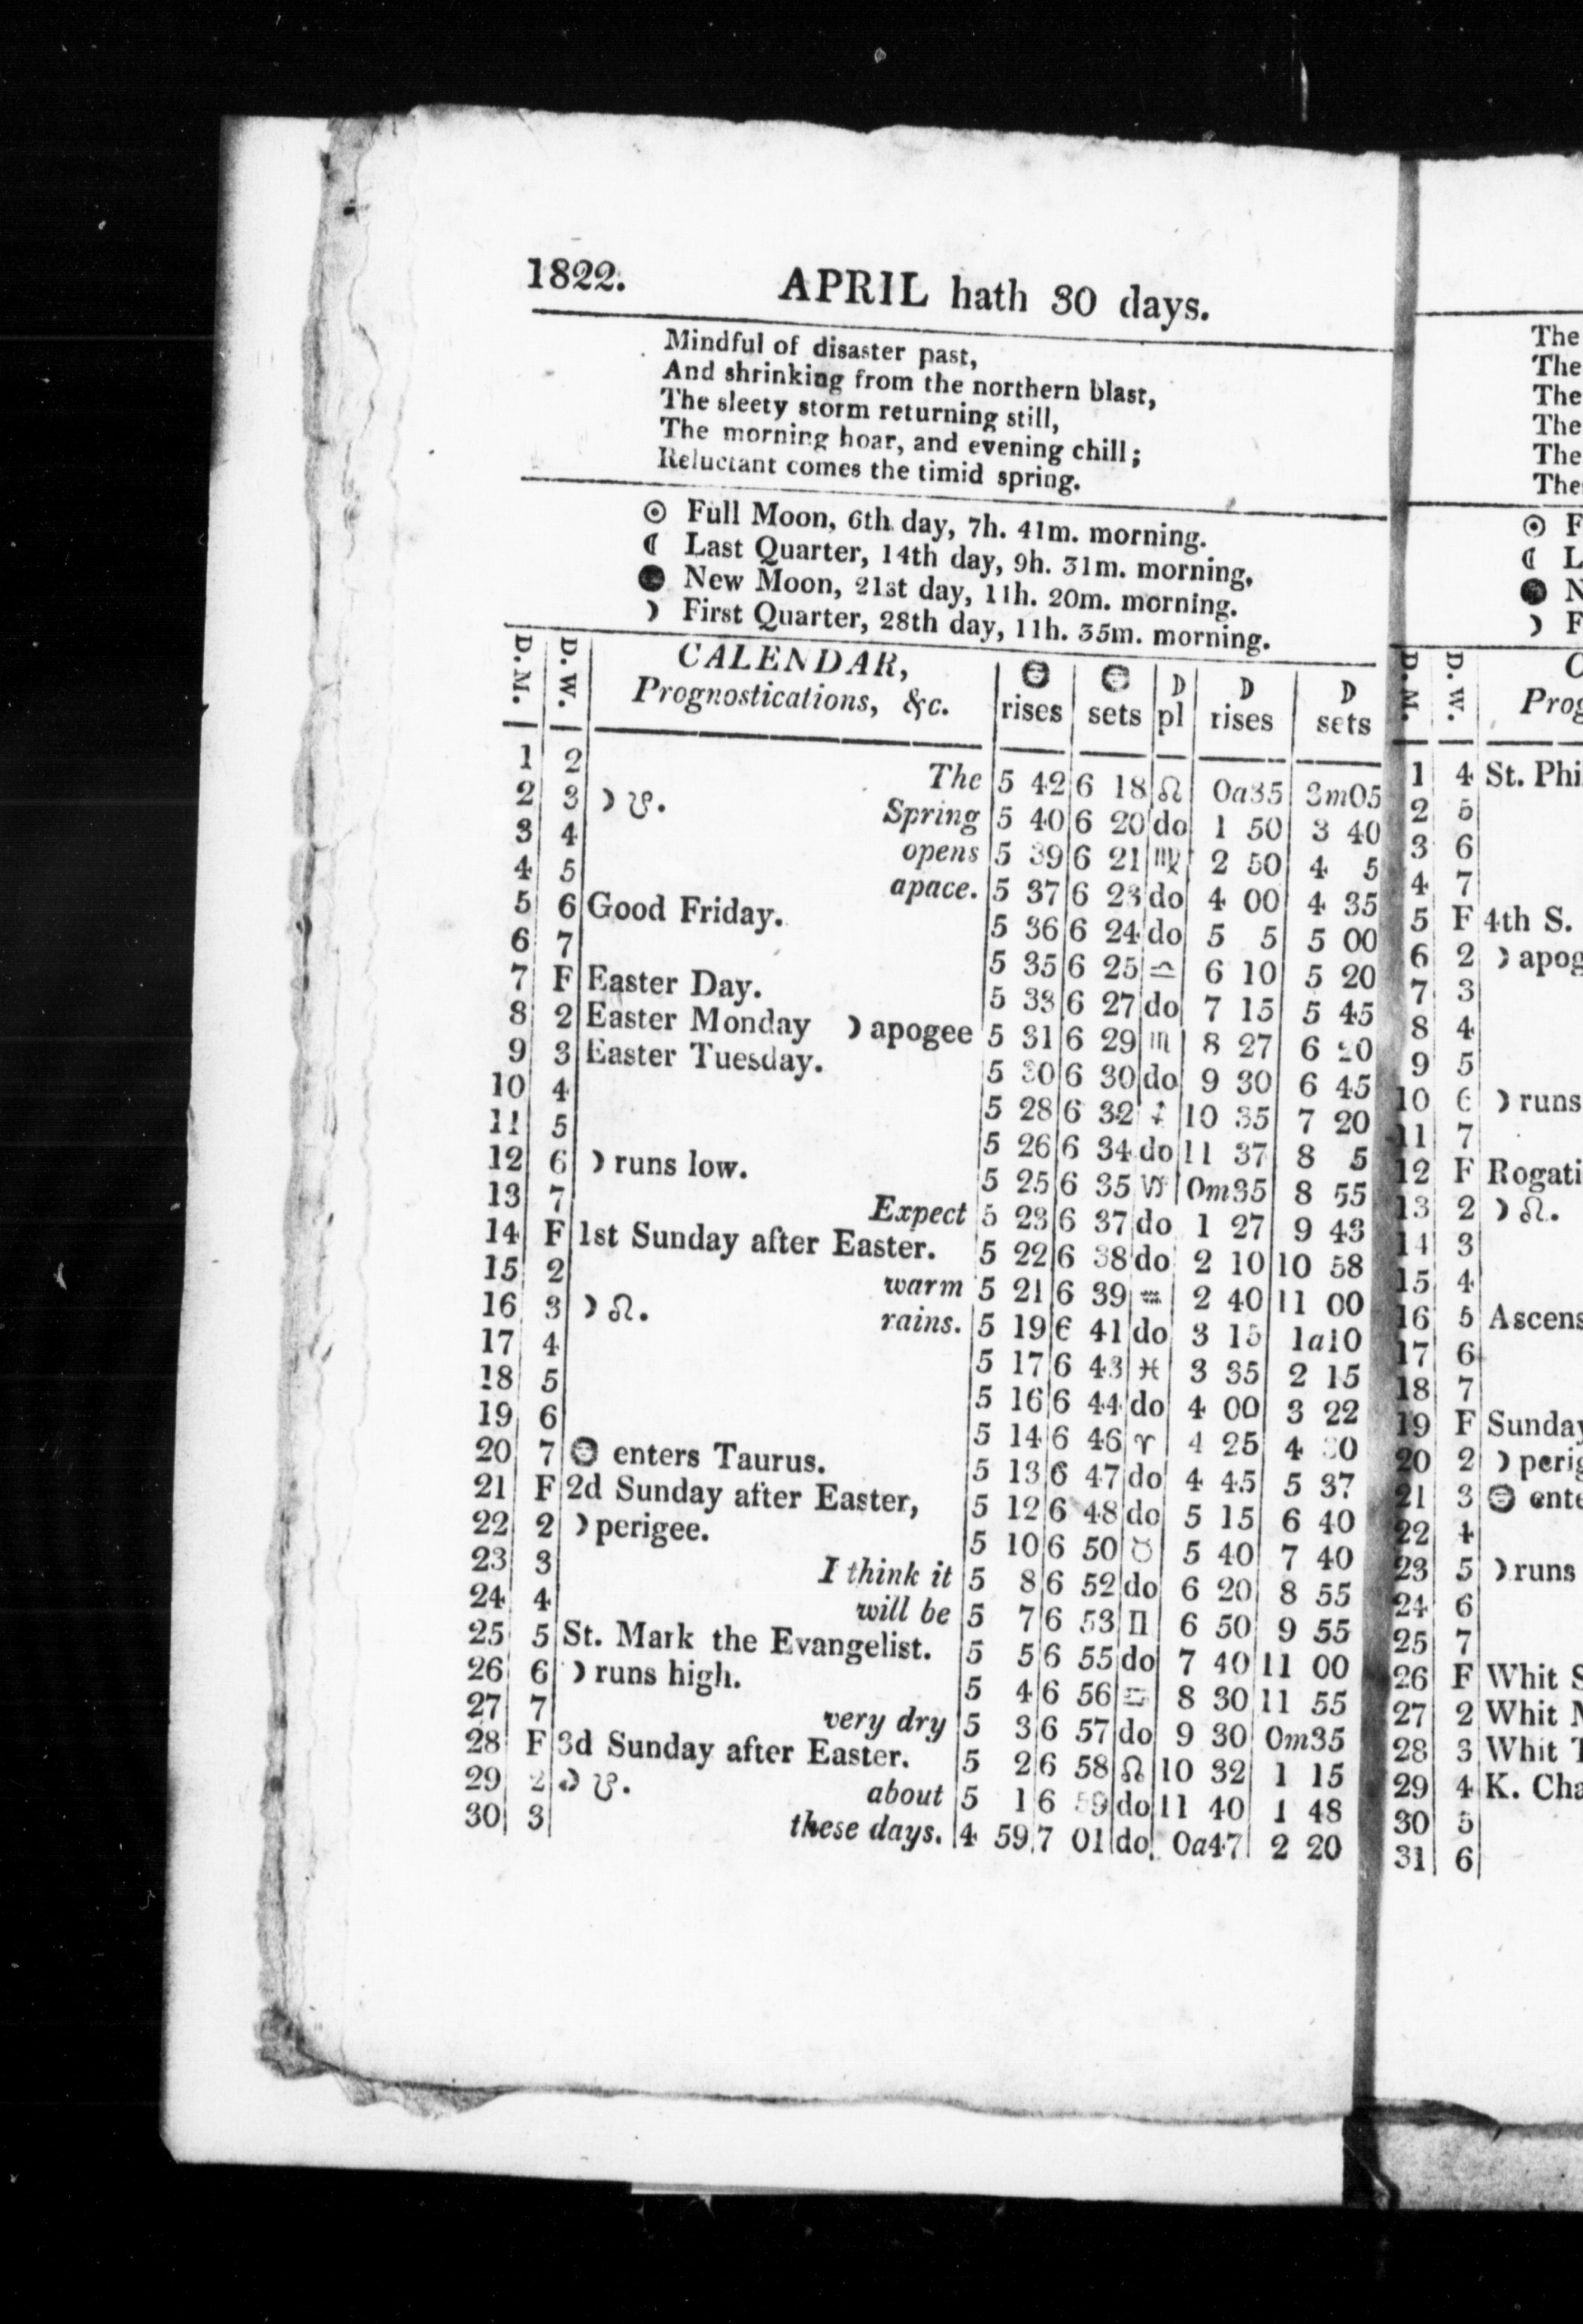 1822. APRIL hath 30 days.
Mindful of disaster past,
And shrinking from the northern blast,
The sleety storm returning still,
The morning hoar, and evening chill;
Reluctant comes the timid spring.
☉ Full Moon, 6th day, 7h. 41m. morning.
☾ Last Quarter, 14th day, 9h. 31m. morning.
● New Moon, 21st day, 11h. 20m. morning.
☽ First Quarter, 28th day, 11h. 35m. morning.
D. M. D. W. CALENDAR, Prognostications, &c. ☉ rises ☉ sets ☽ pl ☽ rises ☽ sets
1 2 The 5 42 6 18 ♌ 0a35 3m05
2 3 ☽ ☋. Spring 5 40 6 20 do 1 50 3 40
3 4 opens 5 39 6 21 ♍ 2 50 4 5
4 5 apace. 5 37 6 23 do 4 00 4 35
5 6 Good Friday. 5 36 6 24 do 5 5 5 00
6 7 5 35 6 25 ♎ 6 10 5 20
7 F Easter Day. 5 33 6 27 do 7 15 5 45
8 2 Easter Monday ☽ apogee 5 31 6 29 ♏ 8 27 6 20
9 3 Easter Tuesday. 5 30 6 30 do 9 30 6 45
10 4 5 28 6 32 ♐ 10 35 7 20
11 5 5 26 6 34 do 11 37 8 5
12 6 ☽ runs low. 5 25 6 35 ♑ 0m35 8 55
13 7 Expect 5 23 6 37 do 1 27 9 43
14 F 1st Sunday after Easter. 5 22 6 38 do 2 10 10 58
15 2 warm 5 21 6 39 ♒ 2 40 11 00
16 3 ☽ ☊. rains. 5 19 6 41 do 3 15 1a10
17 4 5 17 6 43 ♓ 3 35 2 15
18 5 5 16 6 44 do 4 00 3 22
19 6 5 14 6 46 ♈ 4 25 4 30
20 7 ☉ enters Taurus. 5 13 6 47 do 4 45 5 37
21 F 2d Sunday after Easter, 5 12 6 48 do 5 15 6 40
22 2 ☽ perigee. 5 10 6 50 ♉ 5 40 7 40
23 3 I think it 5 8 6 52 do 6 20 8 55
24 4 will be 5 7 6 53 ♊ 6 50 9 55
25 5 St. Mark the Evangelist. 5 5 6 55 do 7 40 11 00
26 6 ☽ runs high. 5 4 6 56 ♋ 8 30 11 55
27 7 very dry 5 3 6 57 do 9 30 0m35
28 F 3d Sunday after Easter. 5 2 6 58 ♌ 10 32 1 15
29 2 ☽ ☋. about 5 1 6 59 do 11 40 1 48
30 3 these days. 4 59 7 01 do 0a47 2 20
The
The
The
The
The
The
☉ F
☾ L
● N
☽ F
D. M. D. W. C
Prog
1 4 St. Phi
2 5
3 6
4 7
5 F 4th S.
6 2 ☽ apog
7 3
8 4
9 5
10 6 ☽ runs
11 7
12 F Rogati
13 2 ☽ ☊.
14 3
15 4
16 5 Ascens
17 6
18 7
19 F Sunday
20 2 ☽ perig
21 3 ☉ ente
22 4
23 5 ☽ runs
24 6
25 7
26 F Whit S
27 2 Whit M
28 3 Whit T
29 4 K. Cha
30 5
31 6